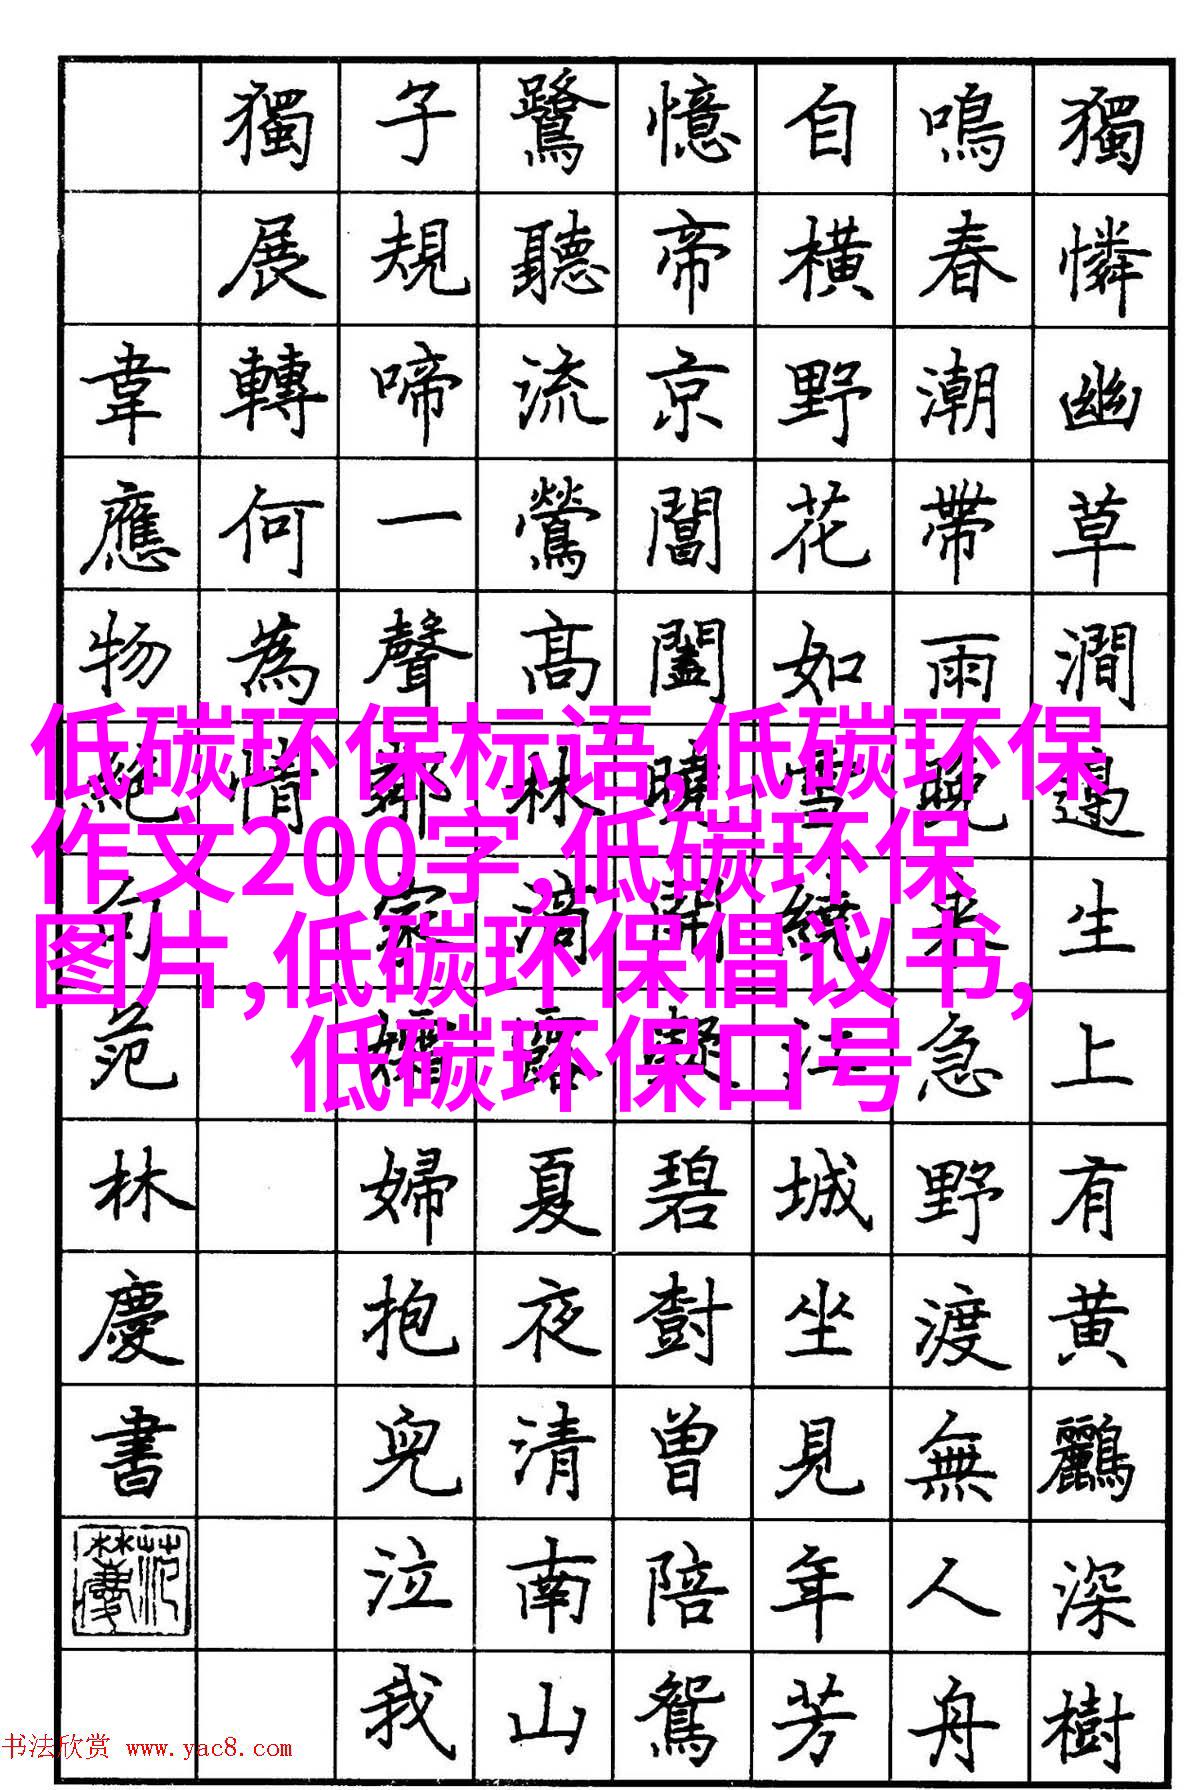 獨憐幽草澗邊生上有黄鸝深樹
鳴春潮帶雨晚來急野渡無人舟
自橫野花如雪繞江城坐見年芳
憶帝京閶闔曉開凝碧樹曾陪鴛
鷺聽流鶯高林滴露夏夜清南山
子規啼一聲鄰家孀婦抱兒泣我
獨展轉何為情
韋應物絕句范林慶書
范林慶
低碳环保标语,低碳环保
作文200字,低碳环保
图片,低碳环保倡议书,
低碳环保口号
书法欣赏 www.yac8.com